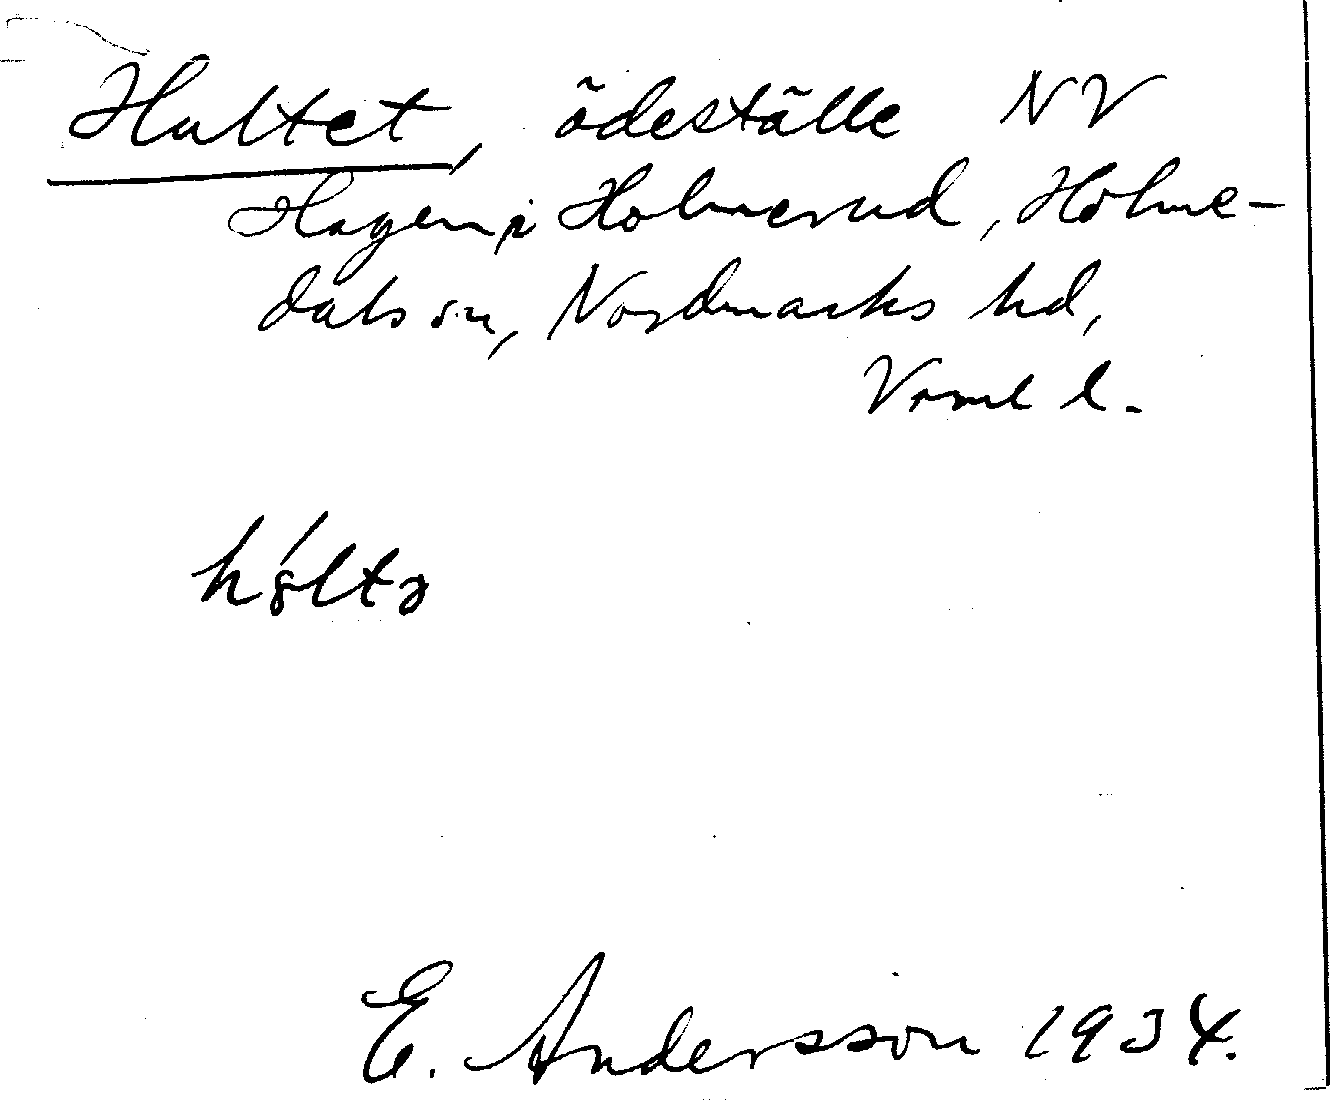 Hultet, ödeställe NV
Hagen, i Holmerud, Holme-
dals sn, Nordmarks hd,
Vrml l.
hólta
E. Andersson 1934.